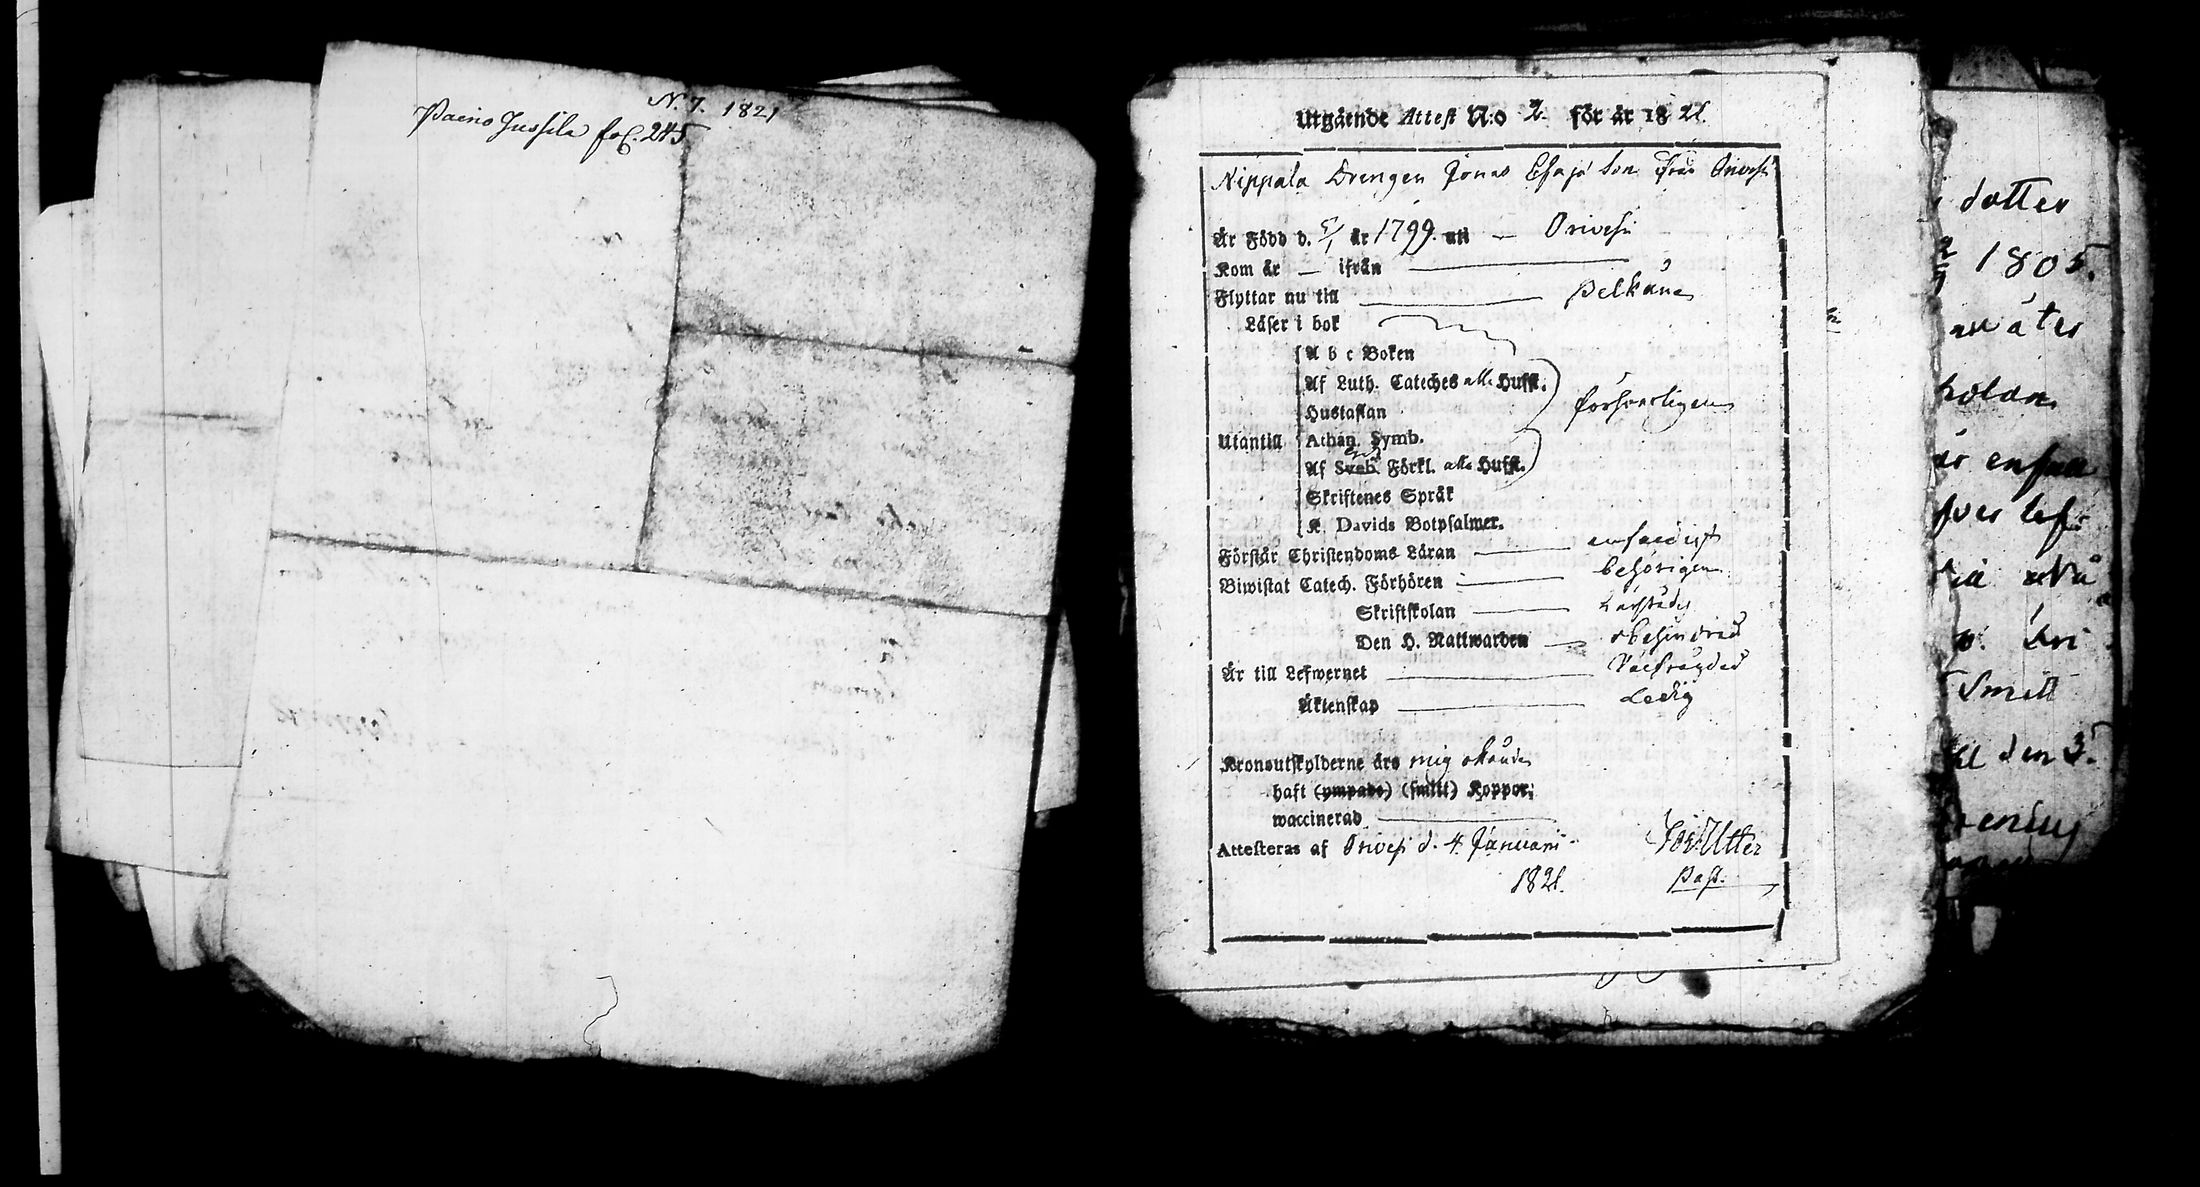 N. 7. 1821
Paino Jussila fol. 245
Utgående Attest N:o 2. för år 1821.
Nippala Drengen Jonas Esajæ Son från Orivesi
Är Född d. 5/1 år 1799. uti — Orivesi
Kom år — ifrån —
Flyttar nu till — Pelkäne
Läser i bok
A b c Boken
Af Luth. Cateches alla Hufst.
Hustaflan
försvarligen
Utantill Athan. Symb.
Af Sveb. Förkl. alla Hufst.
Skriftenes Språk
K. Davids Botpsalmer.
Förstår Christendoms Läran — enfaldigt
Biwistat Catech. Förhören — behörigen
Skriftskolan —
Den H. Nattwarden — obehindrad
Är till Lefwernet — Välfrägdad
Äktenskap — Ledig
Kronoutskylderne äro mig okände
haft (ympade) (smitt) Koppor,
waccinerad —
Attesteras af Orivesi d. 4. Januarii
1821.
Utter
Past.
dotter
1805.
åter
enfall
Smitt
den 3.